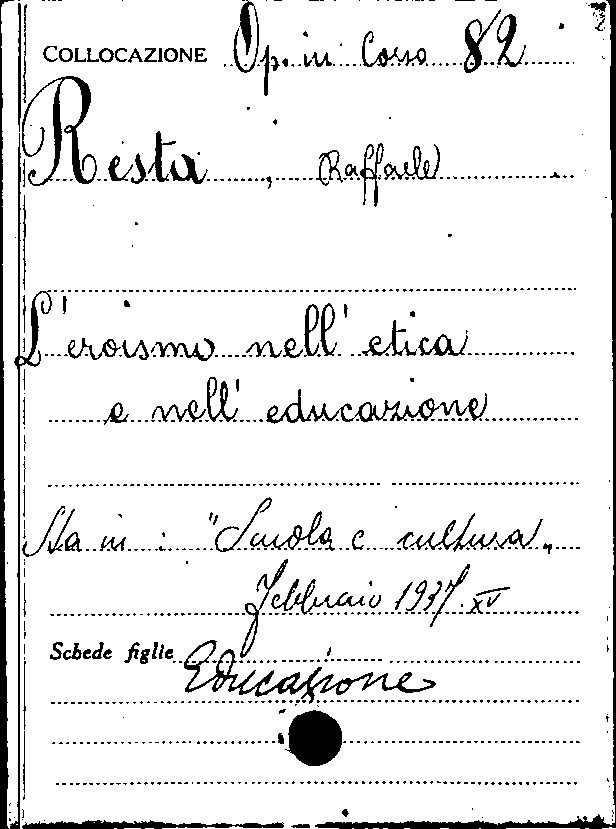 COLLOCAZIONE Op. in Corso 82
Resta, Raffaele.
L'eroismo nell'etica
e nell'educazione
Sta in: "Scuola e cultura„
Febbraio 1937. XV
Schede figlie Educazione